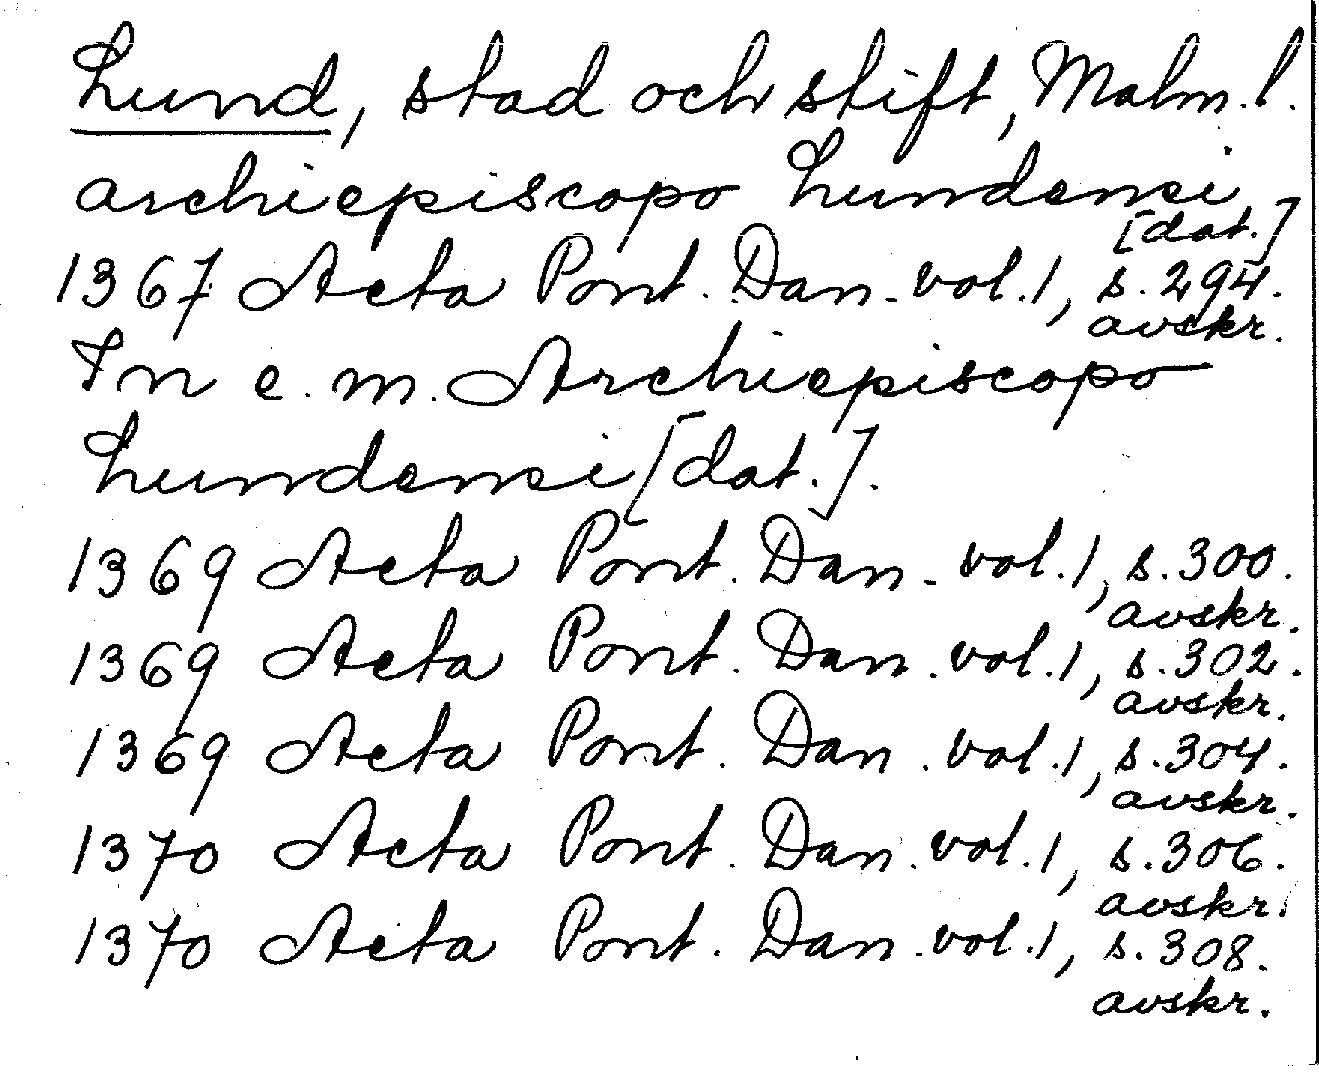 Lund, stad och stift, Malm. l.
archiepiscopo Lundensi
[dat.]
1367 Acta Pont. Dan. vol. 1, s. 294.
avskr.
In e. m. Archiepiscopo
Lundensi [dat.].
1369 Acta Pont. Dan. vol. 1, s. 300.
avskr.
1369 Acta Pont. Dan. vol. 1, s. 302.
avskr.
1369 Acta Pont. Dan. vol. 1, s. 304.
avskr.
1370 Acta Pont. Dan. vol. 1, s. 306.
avskr.
1370 Acta Pont. Dan. vol. 1, s. 308.
avskr.